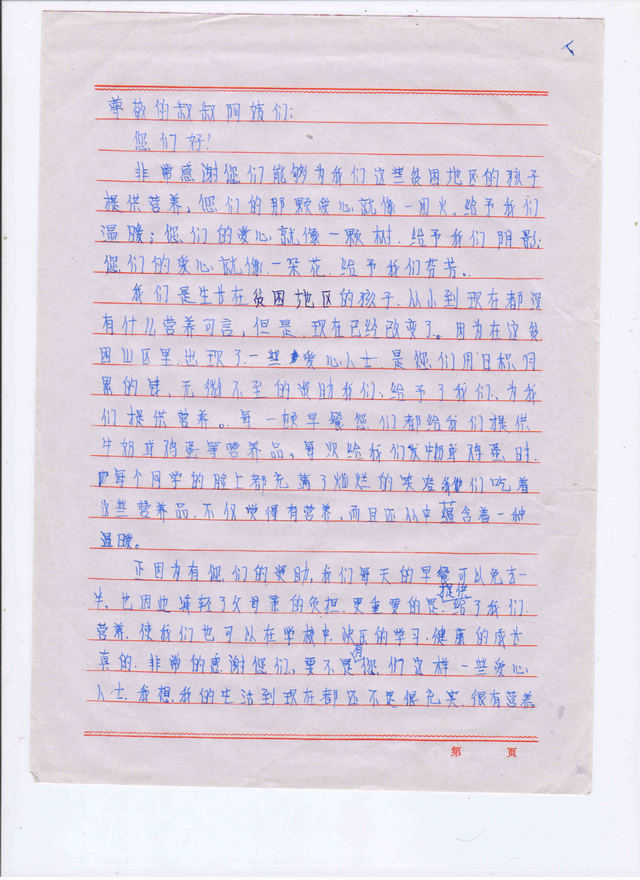 尊敬的叔叔阿姨们:
您们好!
非常感谢您们能够为我们这些贫困地区的孩子
提供营养,您们的那颗爱心就像一团火,给予我们
温暖;您们的爱心就像一颗树,给予我们阴影;
您们的爱心就像一朵花,给予我们芬芳。
我们是生长在贫困地区的孩子,从小到现在都没
有什么营养可言,但是,现在已经改变了。因为在这贫
困山区里,出现了一些爱心人士,是您们用日积月
累的,无微不至的资助我们,给予了我们,为我
们提供营养。每一顿早餐您们都给我们提供
牛奶或鸡蛋等营养品,每次给我们发奶或鸡蛋时,
每个同学的脸上都充满了灿烂的笑容,我们吃着
这些营养品,不仅觉得有营养,而且还从中蕴含着一种
温暖。
正因为有您们的资助,我们每天的早餐可以免去一
半,也因此减轻了父母亲的负担,更重要的是提供给了我们
营养,使我们也可以在学校中快乐的学习,健康的成长
真的,非常的感谢您们,要不是有您们这样一些爱心
人士,我想,我的生活到现在都还不是很充实,很有营养
第 页